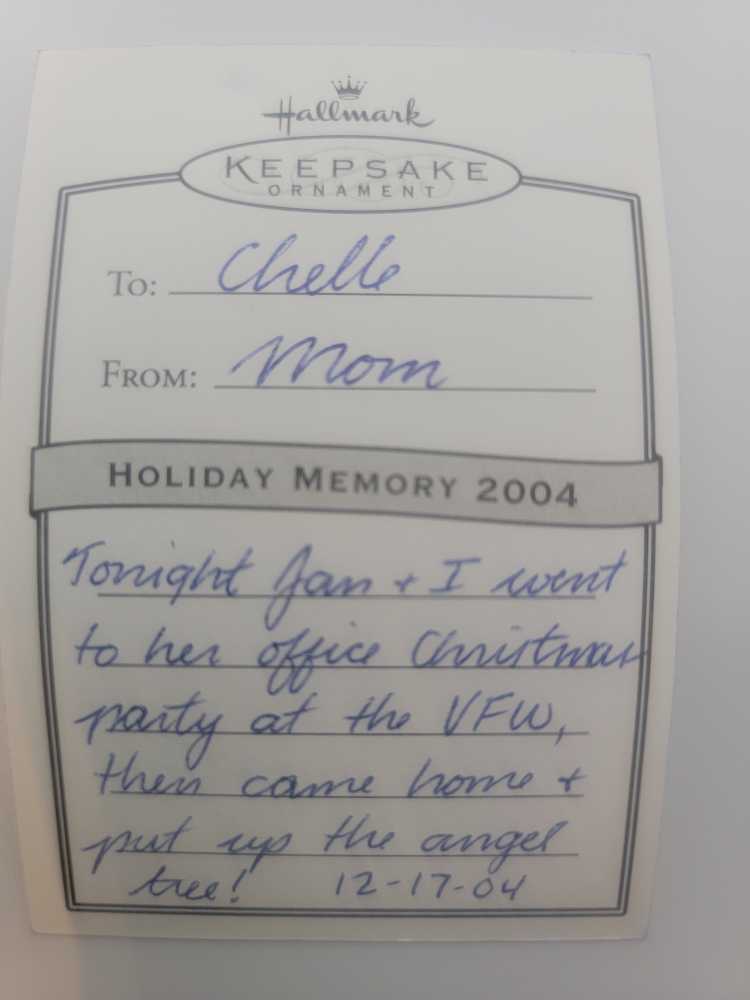 Hallmark
KEEPSAKE
ORNAMENT
TO: Chelle
FROM: Mom
HOLIDAY MEMORY 2004
Tonight Jan + I went
to her office Christmas
party at the VFW,
then came home +
put up the angel
tree! 12-17-04